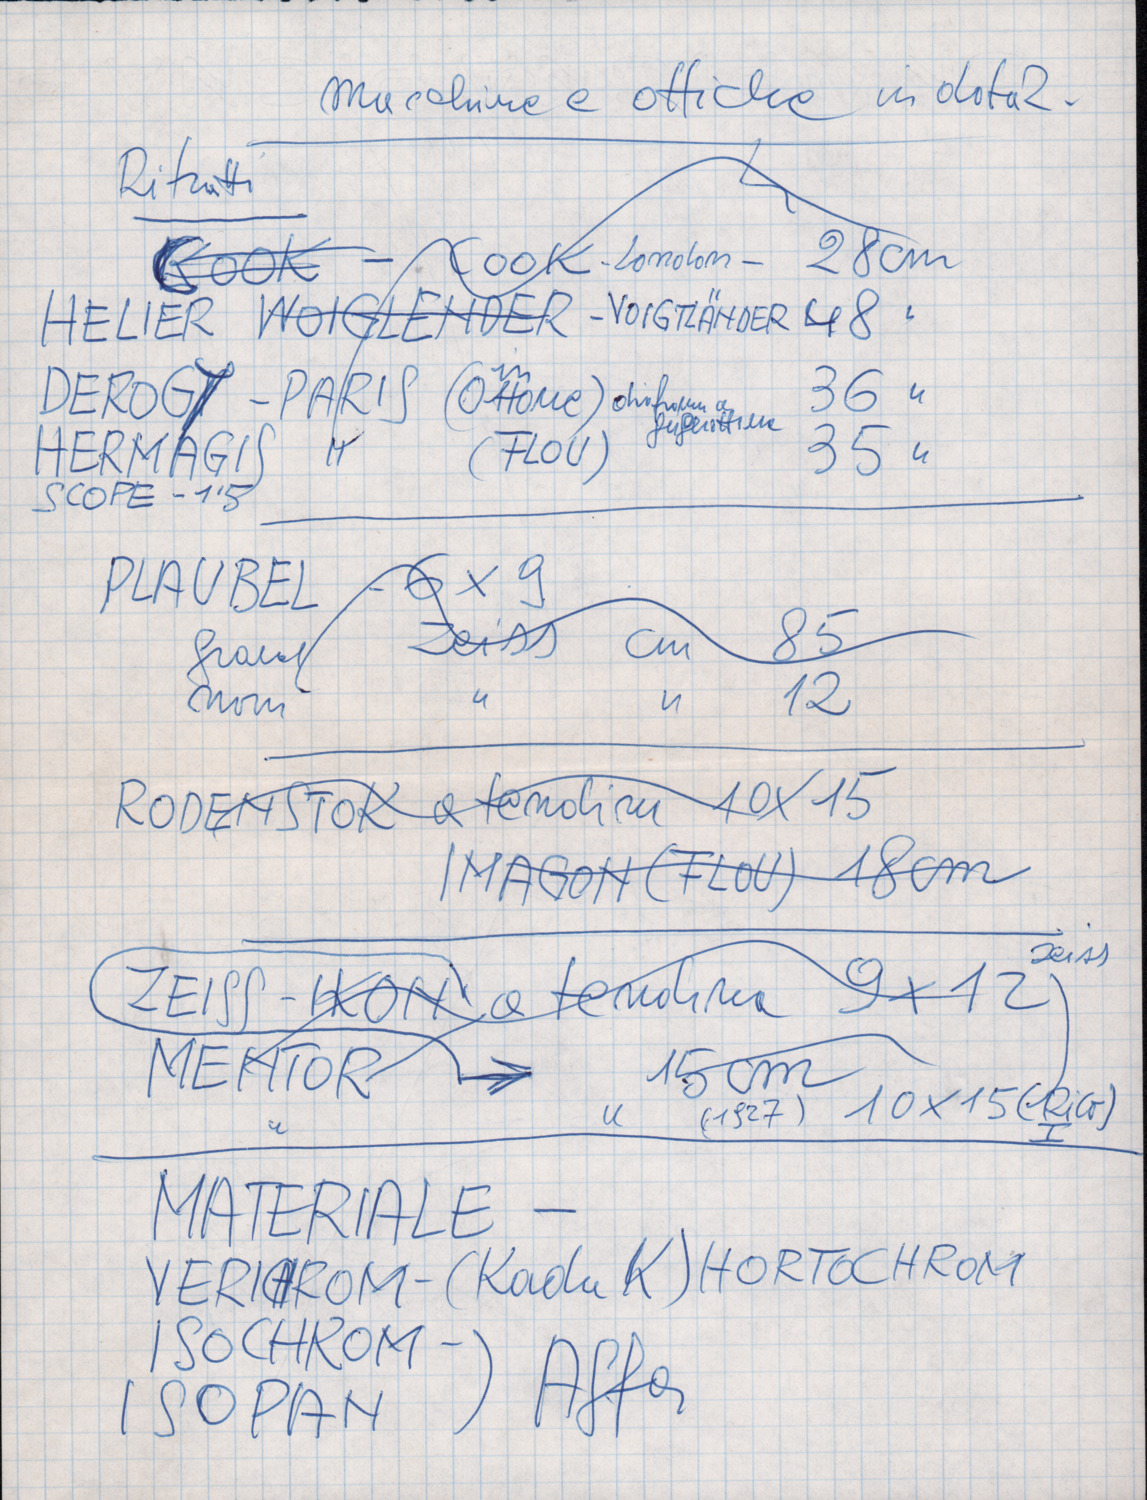 Macchine e ottiche in dotaz.
Ritratti
COOK - COOK - London - 28cm
HELIER WOIGLENDER - VOIGTLÄNDER 48 "
DEROGY - PARIS (in Ottone) diaframma a 36 "
HERMAGIS " (FLOU) 35 "
SCOPE - 1'5
PLAUBEL - 6x9
grand Zeiss cm 85
" " 12
RODENSTOK a tendina 10X15
IMAGON (FLOU) 18cm
ZEISS - IKON a tendina 9x12 zeiss
MENTOR → 15cm
" " (1927) 10x15 (
MATERIALE -
VERICHROM - (KodaK) HORTOCHROM
ISOCHROM -
ISOPAN ) Agfa